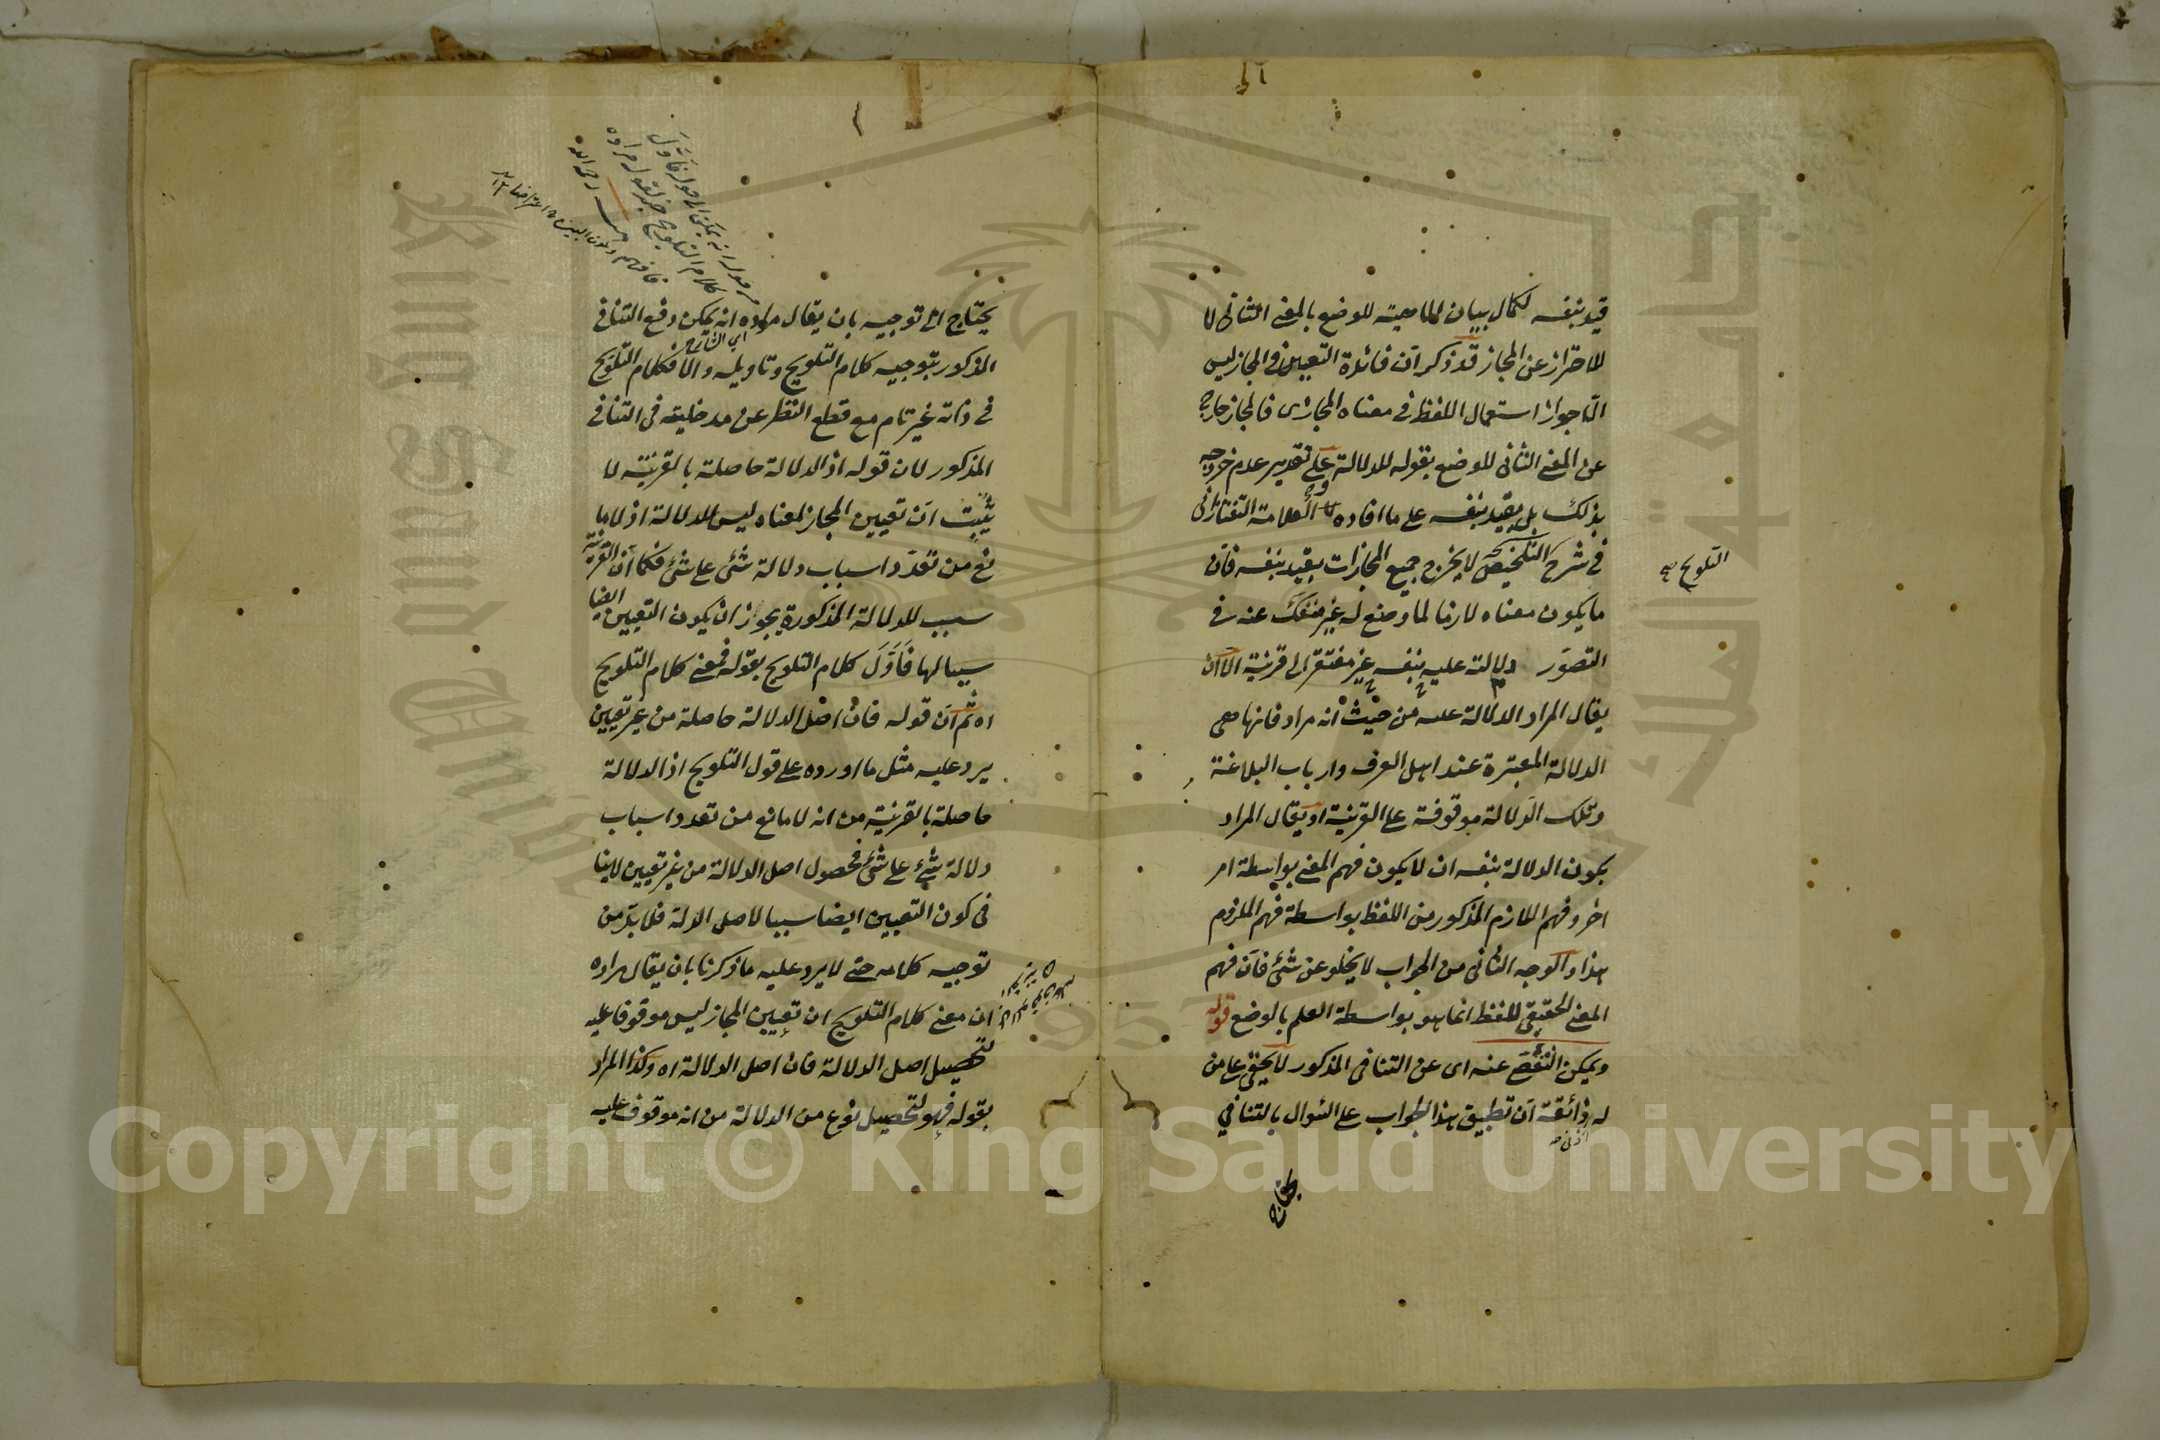 قيد بنفسه لكمال بيان الماهية للوضع بالمعنى الثاني لا
للاحتراز عن المجاز قد ذكر ان فائدة التعيين في المجاز ليس
الا جواز استعمال اللفظ في معناه المجازى فالمجاز خارج
عن المعنى الثاني للوضع بقوله للدلالة على تقدير عدم خروجه
بذلك بل بقيد بنفسه على ما افاده العلامة التفتازانى
في شرح التلخيص لا يخرج جميع المجازات بقيد بنفسه فان
ما يكون معناه لازما لما وضع له غير منفك عنه في
التصور دلالته عليه بنفسه غير مفتقر الى قرينة الا ان
يقال المراد الدلالة عليه من حيث انه مراد فانها هى
الدلالة المعتبرة عند اهل العرف وارباب البلاغة
وتلك الدلالة موقوفة على القرينة او يقال المراد
بكون الدلالة بنفسه ان لا يكون فهم المعنى بواسطة امر
اخر وفهم اللازم المذكور من اللفظ بواسطة فهم الملزوم
هذا والوجه الثانى من الجواب لا يخلو عن شئ فان فهم
المعنى الحقيقي للفظ انما هو بواسطة العلم بالوضع قوله
ويمكن التفصي عنه اى عن التنافى المذكور لا يخفى على من
له ذائقة ان تطبيق هذا الجواب على السؤال بالتنافي
التلويح صح
يحتاج
يحتاج الى توجيه بان يقال مراده انه يمكن دفع التنافى
اى الشارح
المذكور بتوجيه كلام التلويح وتاويله والا فكلام التلويح
في ذاته غير تام مع قطع النظر عن مدخليته في التنافى
المذكور لان قوله اذ الدلالة حاصلة بالقرينة لا
يثبت ان تعيين المجاز لمعناه ليس للدلالة اذ لا ما
نع من تعدد اسباب دلالة شئ على شئ فكما ان القرينة
سبب للدلالة المذكورة يجوز ان يكون التعيين ايضا
سببا لها فاول كلام التلويح بقوله فمعنى كلام التلويح
اه ثم ان قوله فان اصل الدلالة حاصلة من غير تعيين
يرد عليه مثل ما اورده على قول التلويح اذ الدلالة
حاصلة بالقرينة من انه لا مانع من تعدد اسباب
دلالة شئ على شئ فحصول اصل الدلالة من غير تعيين لا ينا
فى كون التعيين ايضا سببا لاصل الدلة فلا بد من
توجيه كلامه حتى لا يرد عليه ما ذكرنا بان يقال مراده
ان معنى كلام التلويح ان تعيين المجاز ليس موقوفا عليه
لتحصيل اصل الدلالة فان اصل الدلالة اه وكذا المراد
بقوله فهو لتحصيل نوع من الدلالة من انه موقوف عليه
Copyright © King Saud University